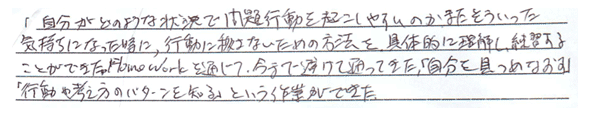 「自分がどのような状況で問題行動を起こしやすいのかまたそういった
気持ちになった時に、行動に移さないための方法を、具体的に理解し、練習する
ことができた。Home Workを通じて、今まで避けて通ってきた、「自分を見つめなおす」
「行動や考え方のパターンを知る」という作業ができた。